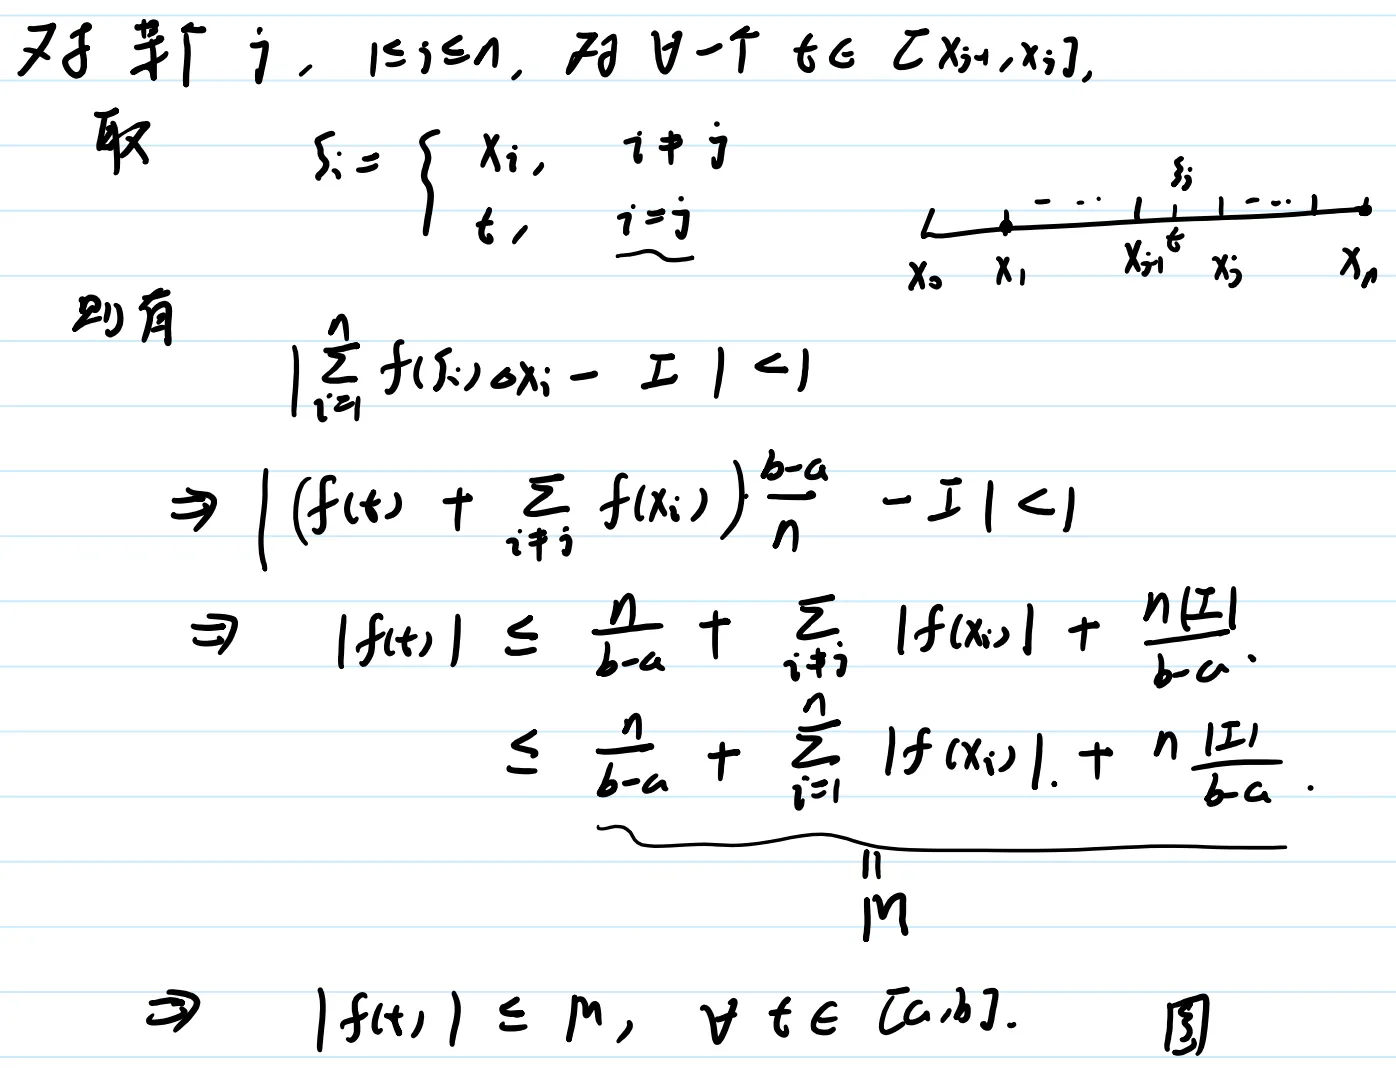 对某个 j, 1≤j≤n, 对∀一个 t∈ [x_{j-1}, x_j],
取 ξ_i = { x_i, i≠j
t, i=j
ξ_j
x_0 x_1 x_{j-1} t x_j x_n
则有
|∑_{i=1}^{n} f(ξ_i)Δx_i − I| <1
⇒ |(f(t) + ∑_{i≠j} f(x_i))·\frac{b-a}{n} − I| <1
⇒ |f(t)| ≤ \frac{n}{b-a} + ∑_{i≠j} |f(x_i)| + \frac{n|I|}{b-a}.
≤ \frac{n}{b-a} + ∑_{i=1}^{n} |f(x_i)|. + n\frac{|I|}{b-a}.
||
M
⇒ |f(t)| ≤ M, ∀ t∈ [a,b].